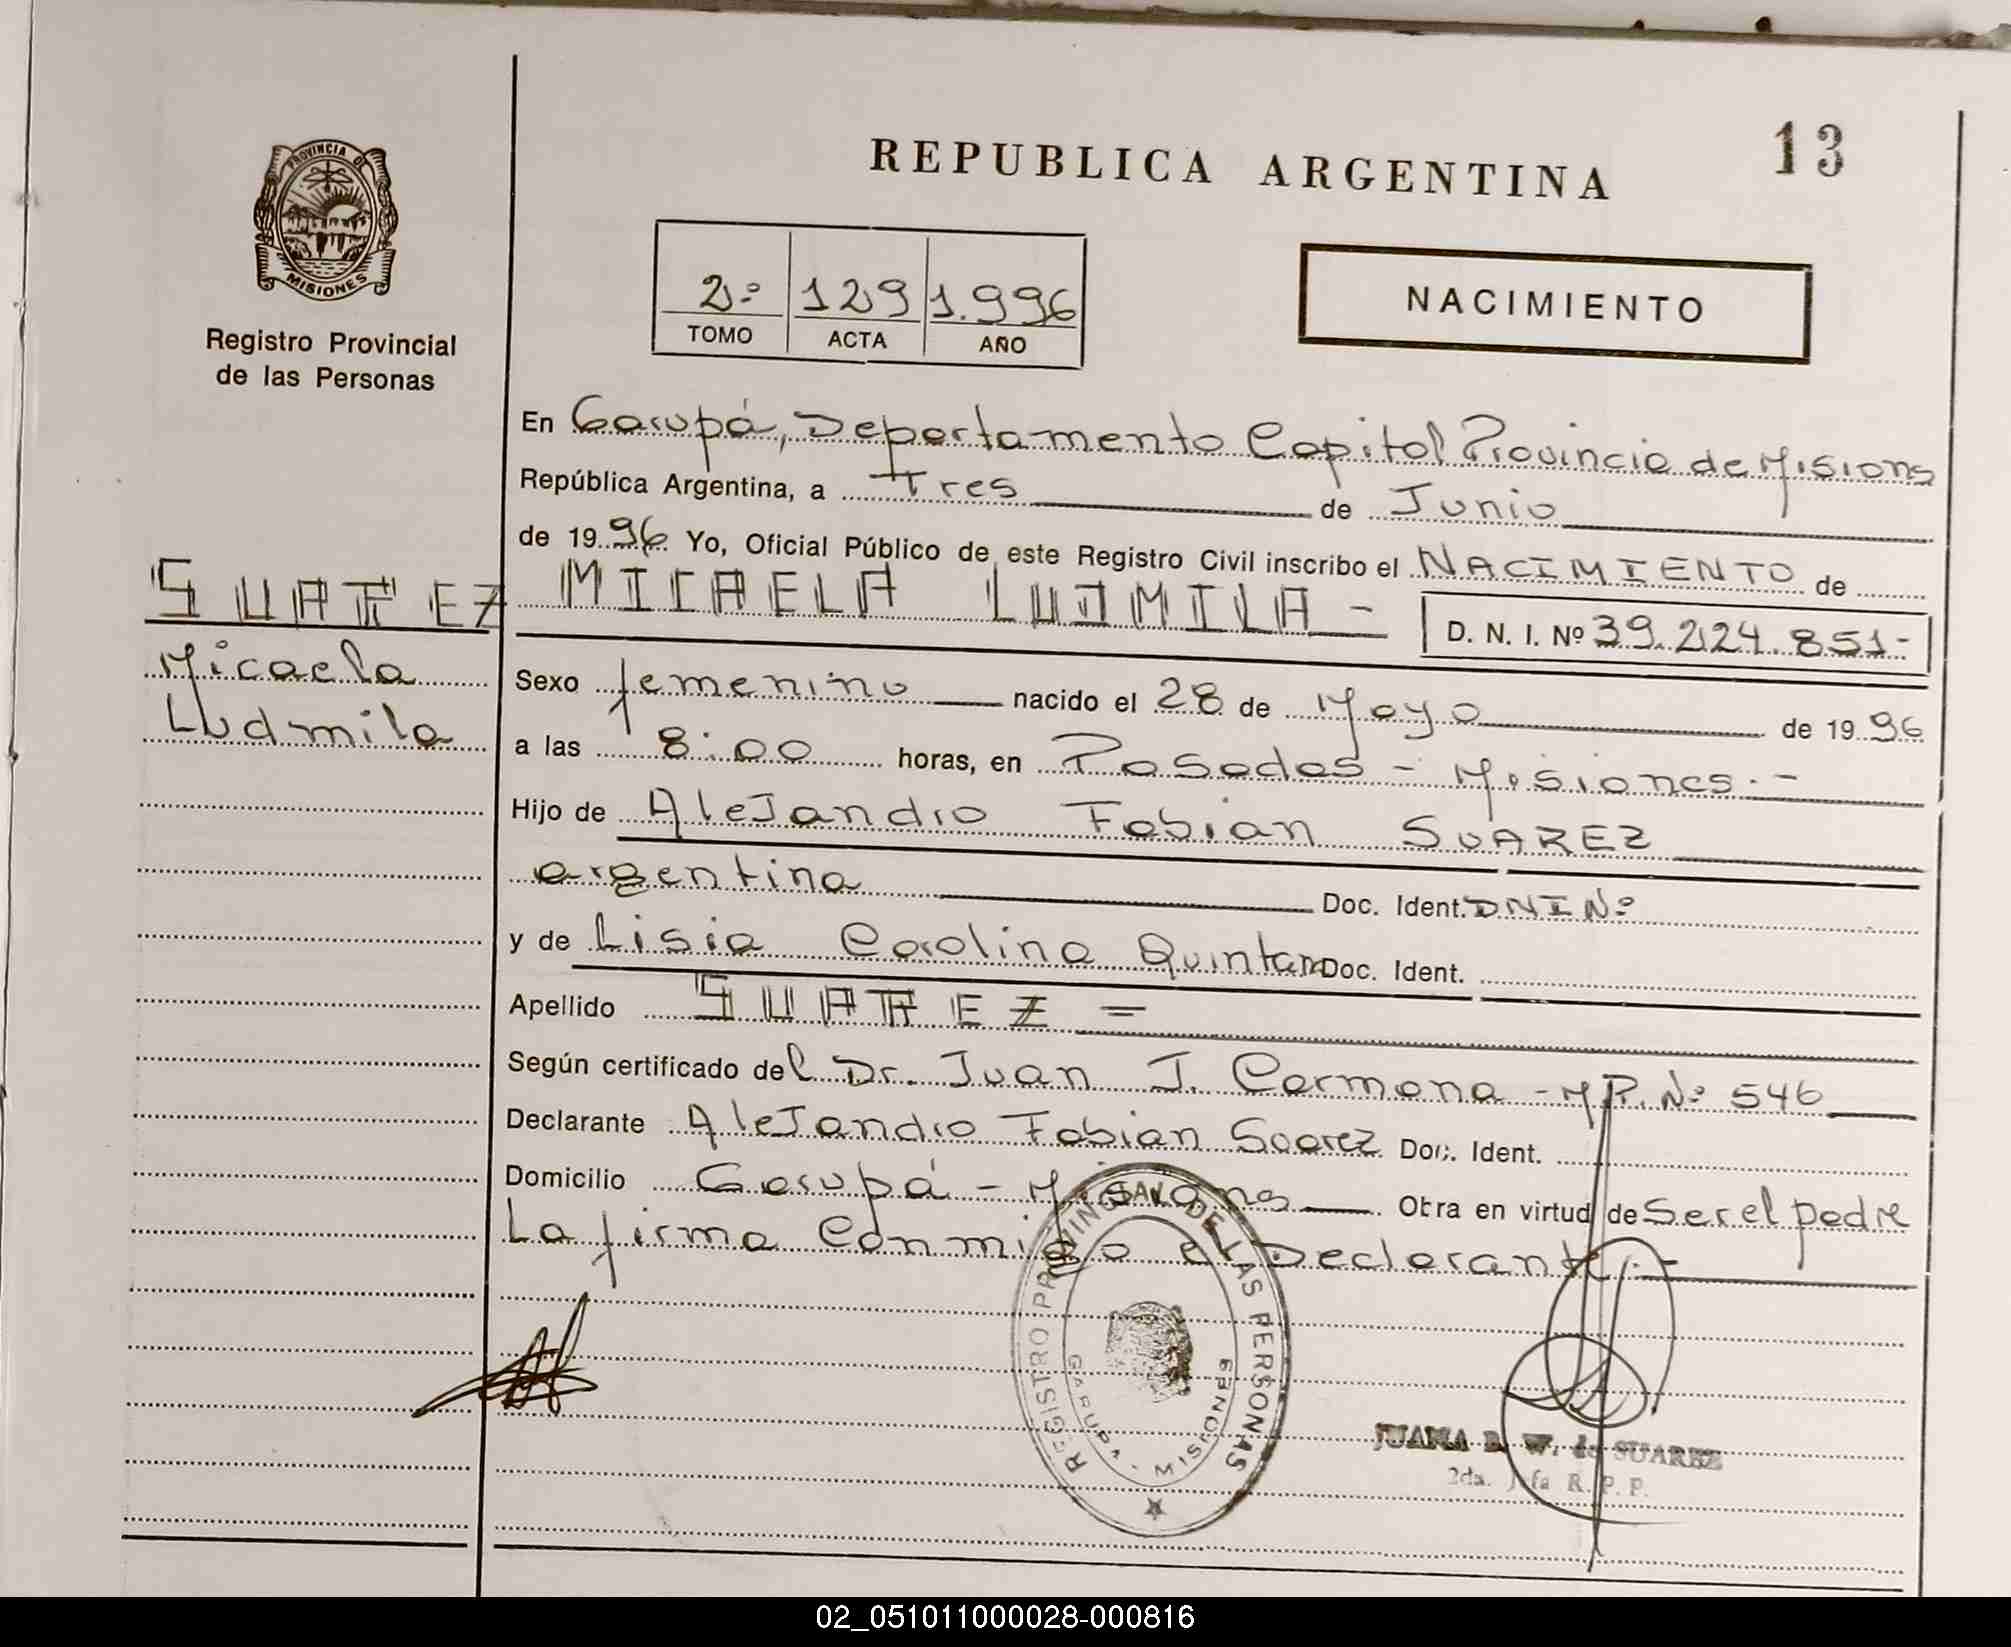 REPUBLICA ARGENTINA
13
PROVINCIA DE
MISIONES
Registro Provincial
de las Personas
2º 129 1.996
TOMO ACTA AÑO
NACIMIENTO
En Garupá, Departamento Capital Provincia de Misions
República Argentina, a Tres de Junio
de 1996 Yo, Oficial Público de este Registro Civil inscribo el NACIMIENTO de
SUAREZ
Micaela
Ludmila
MICAELA LUDMILA -
D. N. I. Nº 39.224.851-
Sexo femenino nacido el 28 de Mayo de 1996
a las 8:00 horas, en Posadas - Misiones.-
Hijo de Alejandro Fabian SUAREZ
argentina Doc. Ident. DNI Nº
y de Lisia Carolina Quintan Doc. Ident.
Apellido SUAREZ =
Según certificado del Dr. Juan J. Carmona - M.P. Nº 546
Declarante Alejandro Fabian Suarez Doc. Ident.
Domicilio Garupá - Misions Obra en virtud de Ser el padre
La firma Conmigo el Declarante.-
REGISTRO PROVINCIAL DE LAS PERSONAS
GARUPA - MISIONES
JUANA B. W. de SUAREZ
2da. Jefa R. P. P.
02_051011000028-000816